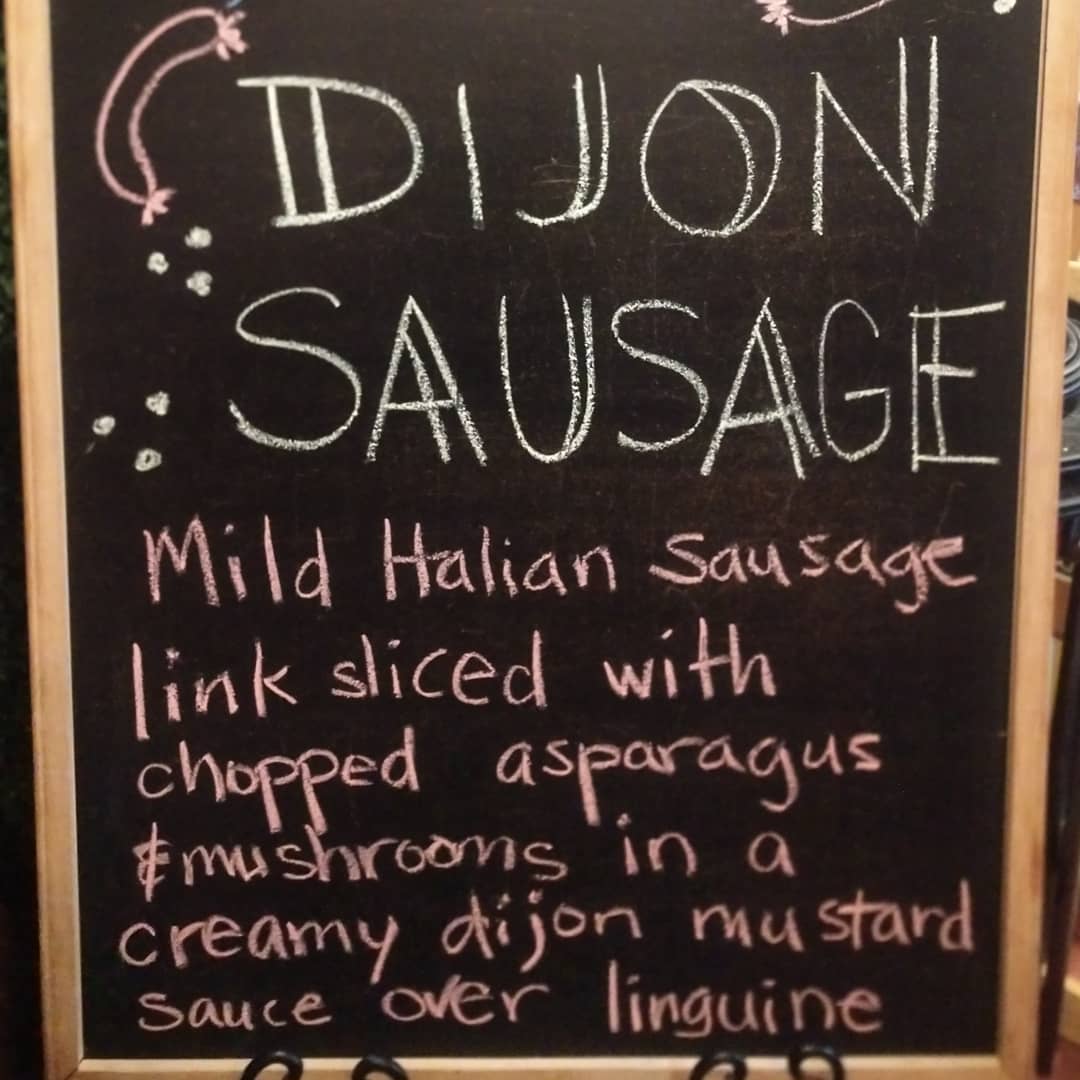 DIJON
SAUSAGE
Mild Italian Sausage
link sliced with
chopped asparagus
& mushrooms in a
creamy dijon mustard
sauce over linguine